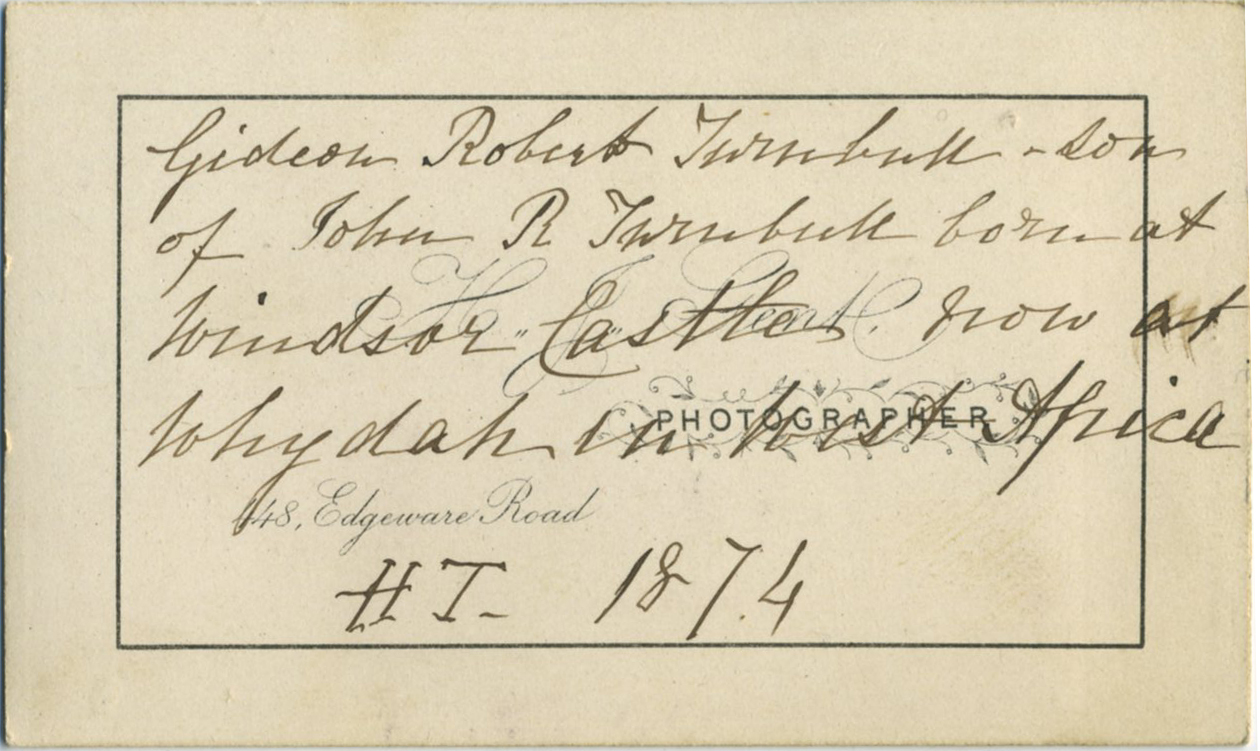 Gideon Robert Turnbull - son
of John R Turnbull born at
Windsor Castle now at
Whydah in West Africa
PHOTOGRAPHER
448, Edgeware Road
HT- 1874